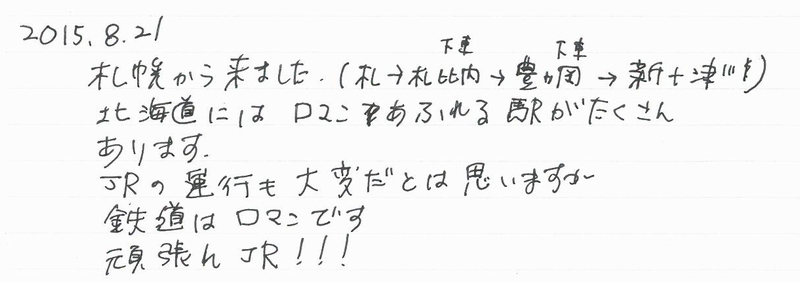 2015.8.21
下車 下車
札幌から来ました.(札→札比内→豊ヶ岡→新十津川)
北海道には ロマンあふれる 駅がたくさん
あります.
JRの運行も大変だとは思いますが
鉄道はロマンです
頑張れJR!!!